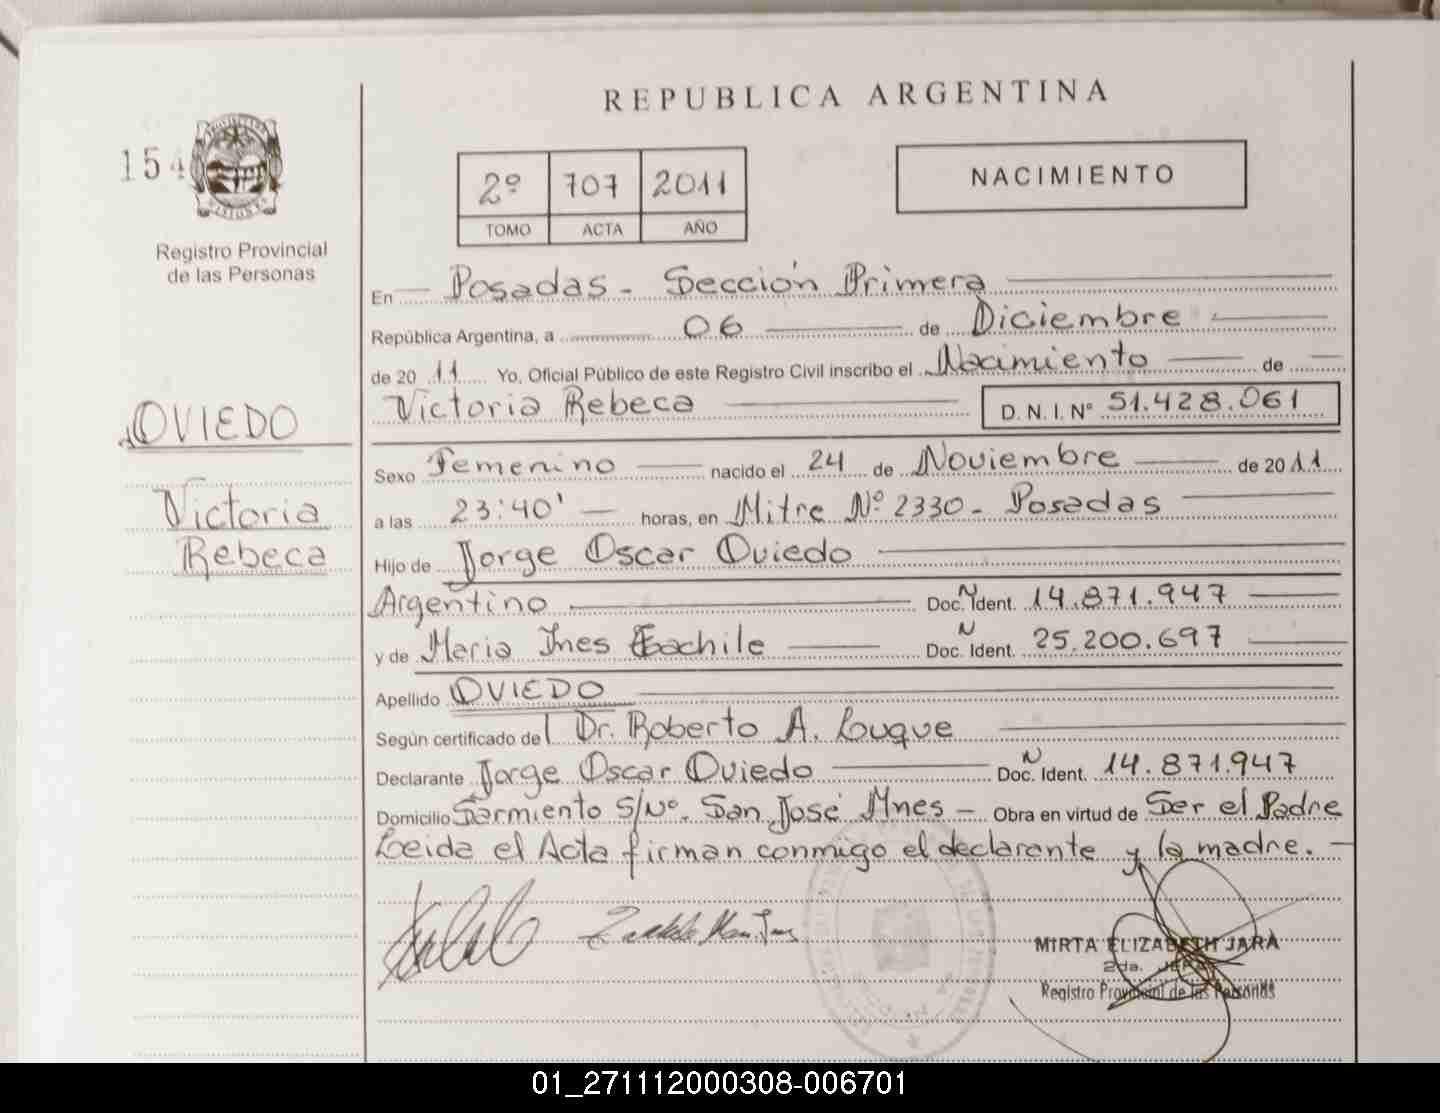 REPUBLICA ARGENTINA
154
2º 707 2011
TOMO ACTA AÑO
NACIMIENTO
Registro Provincial
de las Personas
En Posadas - Sección Primera
República Argentina, a 06 de Diciembre
de 2011 Yo, Oficial Público de este Registro Civil inscribo el Nacimiento de
Victoria Rebeca D.N.I. Nº 51.428.061
OVIEDO
Victoria
Rebeca
Sexo Femenino nacido el 24 de Noviembre de 2011
a las 23:40' horas, en Mitre Nº 2330 - Posadas
Hijo de Jorge Oscar Oviedo
Argentino Doc. Ident. 14.871.947
y de Maria Ines Doc. Ident. 25.200.697
Apellido OVIEDO
Según certificado del Dr. Roberto A. Luque
Declarante Jorge Oscar Oviedo Doc. Ident. 14.871.947
Domicilio Sarmiento S/Nº. San José Mnes - Obra en virtud de Ser el Padre
Leida el Acta firman conmigo el declarante y la madre. -
MIRTA ELIZABETH JARA
2da. JEFA
Registro Provincial de las Personas
01_271112000308-006701